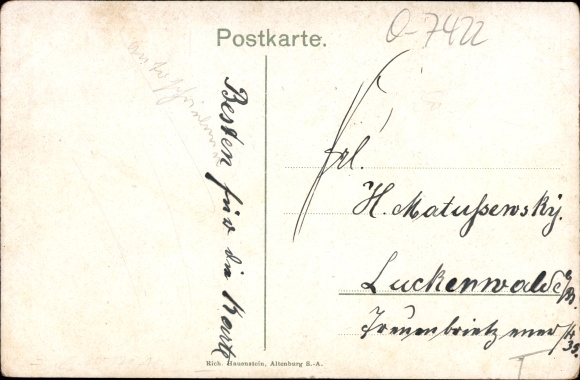 Postkarte.
O-7422
Besten für die Karte
Frl.
H. Matussewsky.
Luckenwalde
Treuenbrietzener
Rich. Hauenstein, Altenburg S.-A.